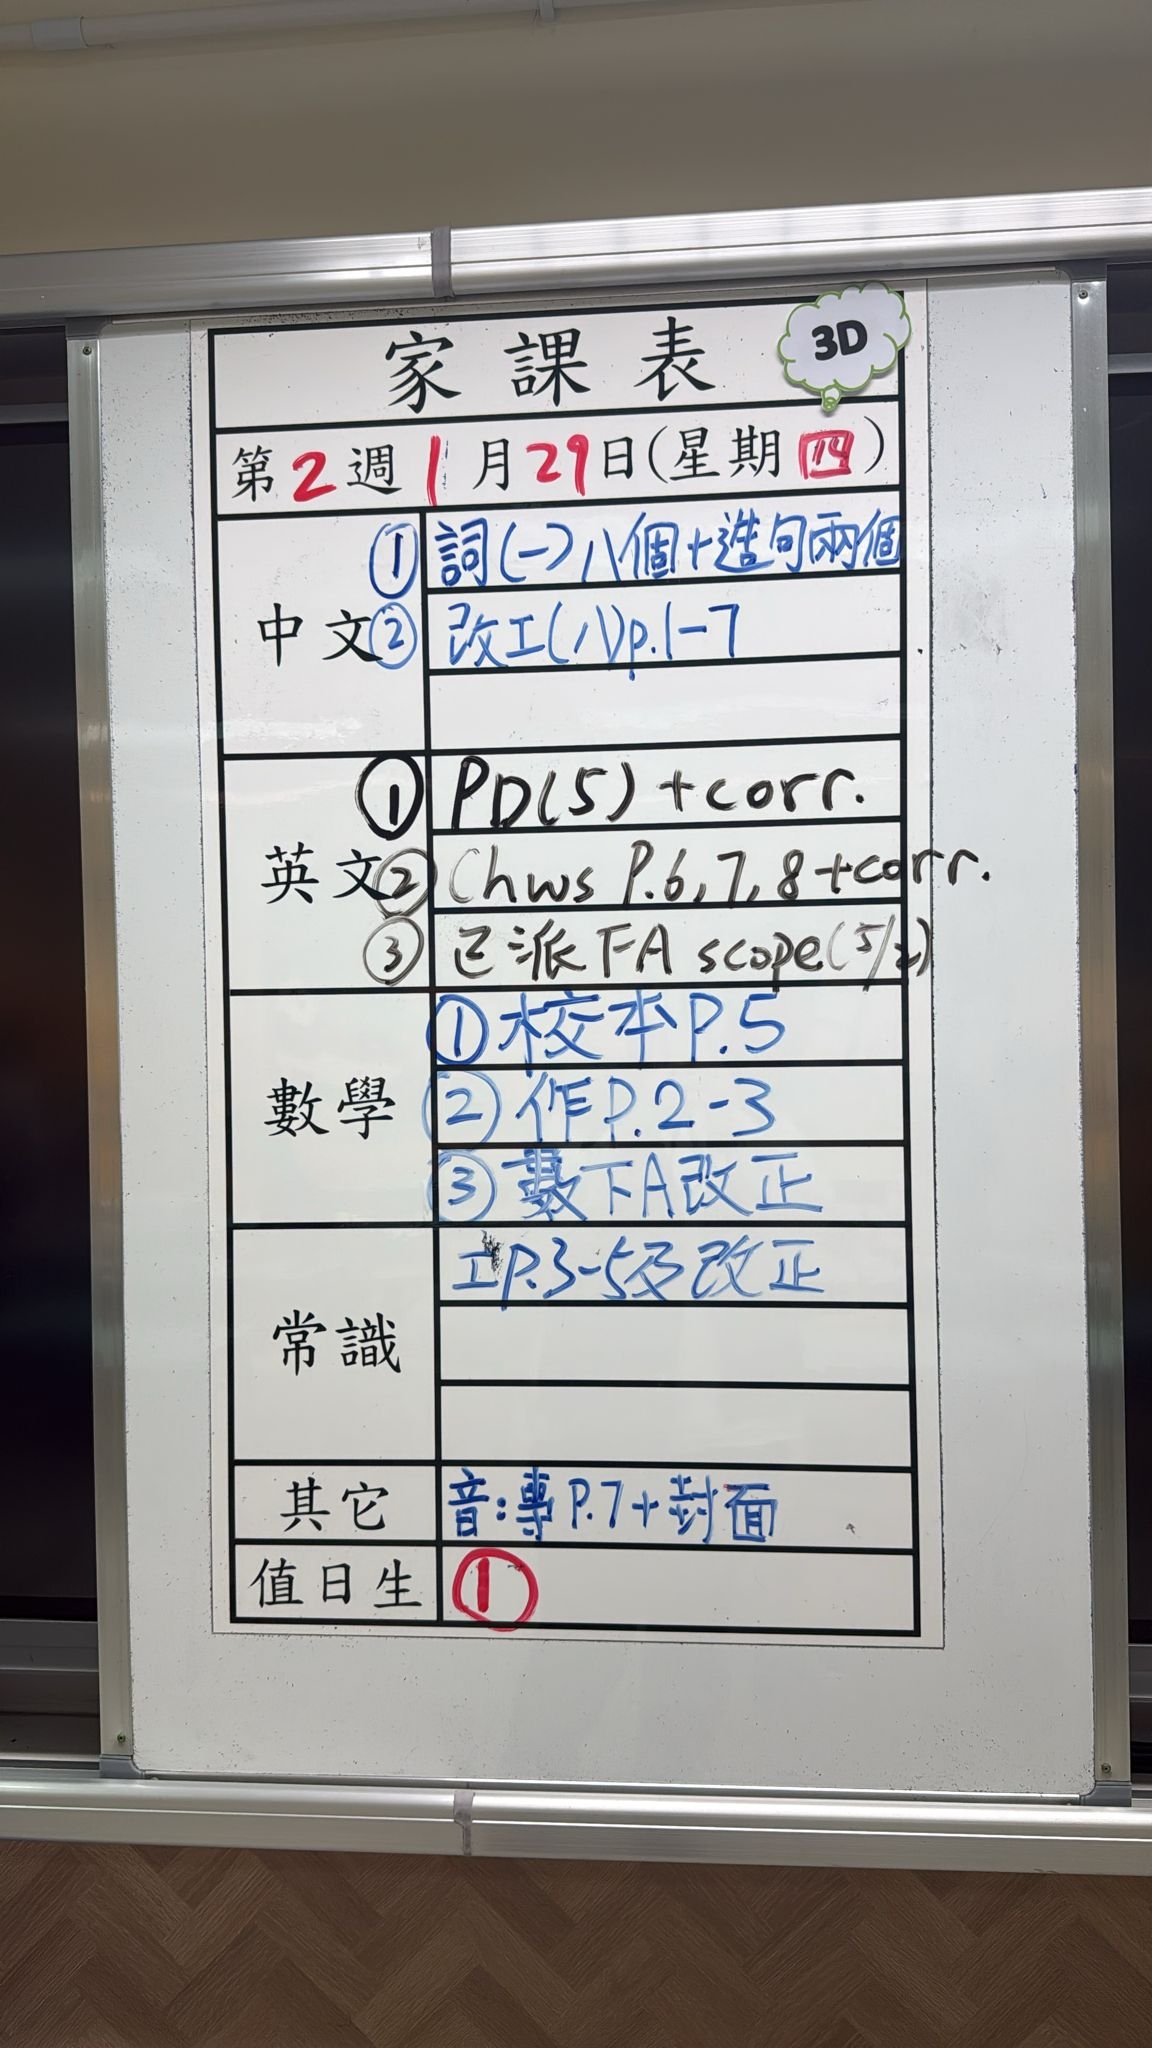 家課表
3D
第2週1月29日(星期四)
中文
① 詞(一)八個+造句兩個
② 改工(八)p.1-7
英文
① PD(5)+corr.
② Chws P.6,7,8+corr.
③ 已派FA scope(5/2)
數學
① 校本P.5
② 作P.2-3
③ 數下A改正
常識
工P.3-5及改正
其它
音:專P.7+封面
值日生
①